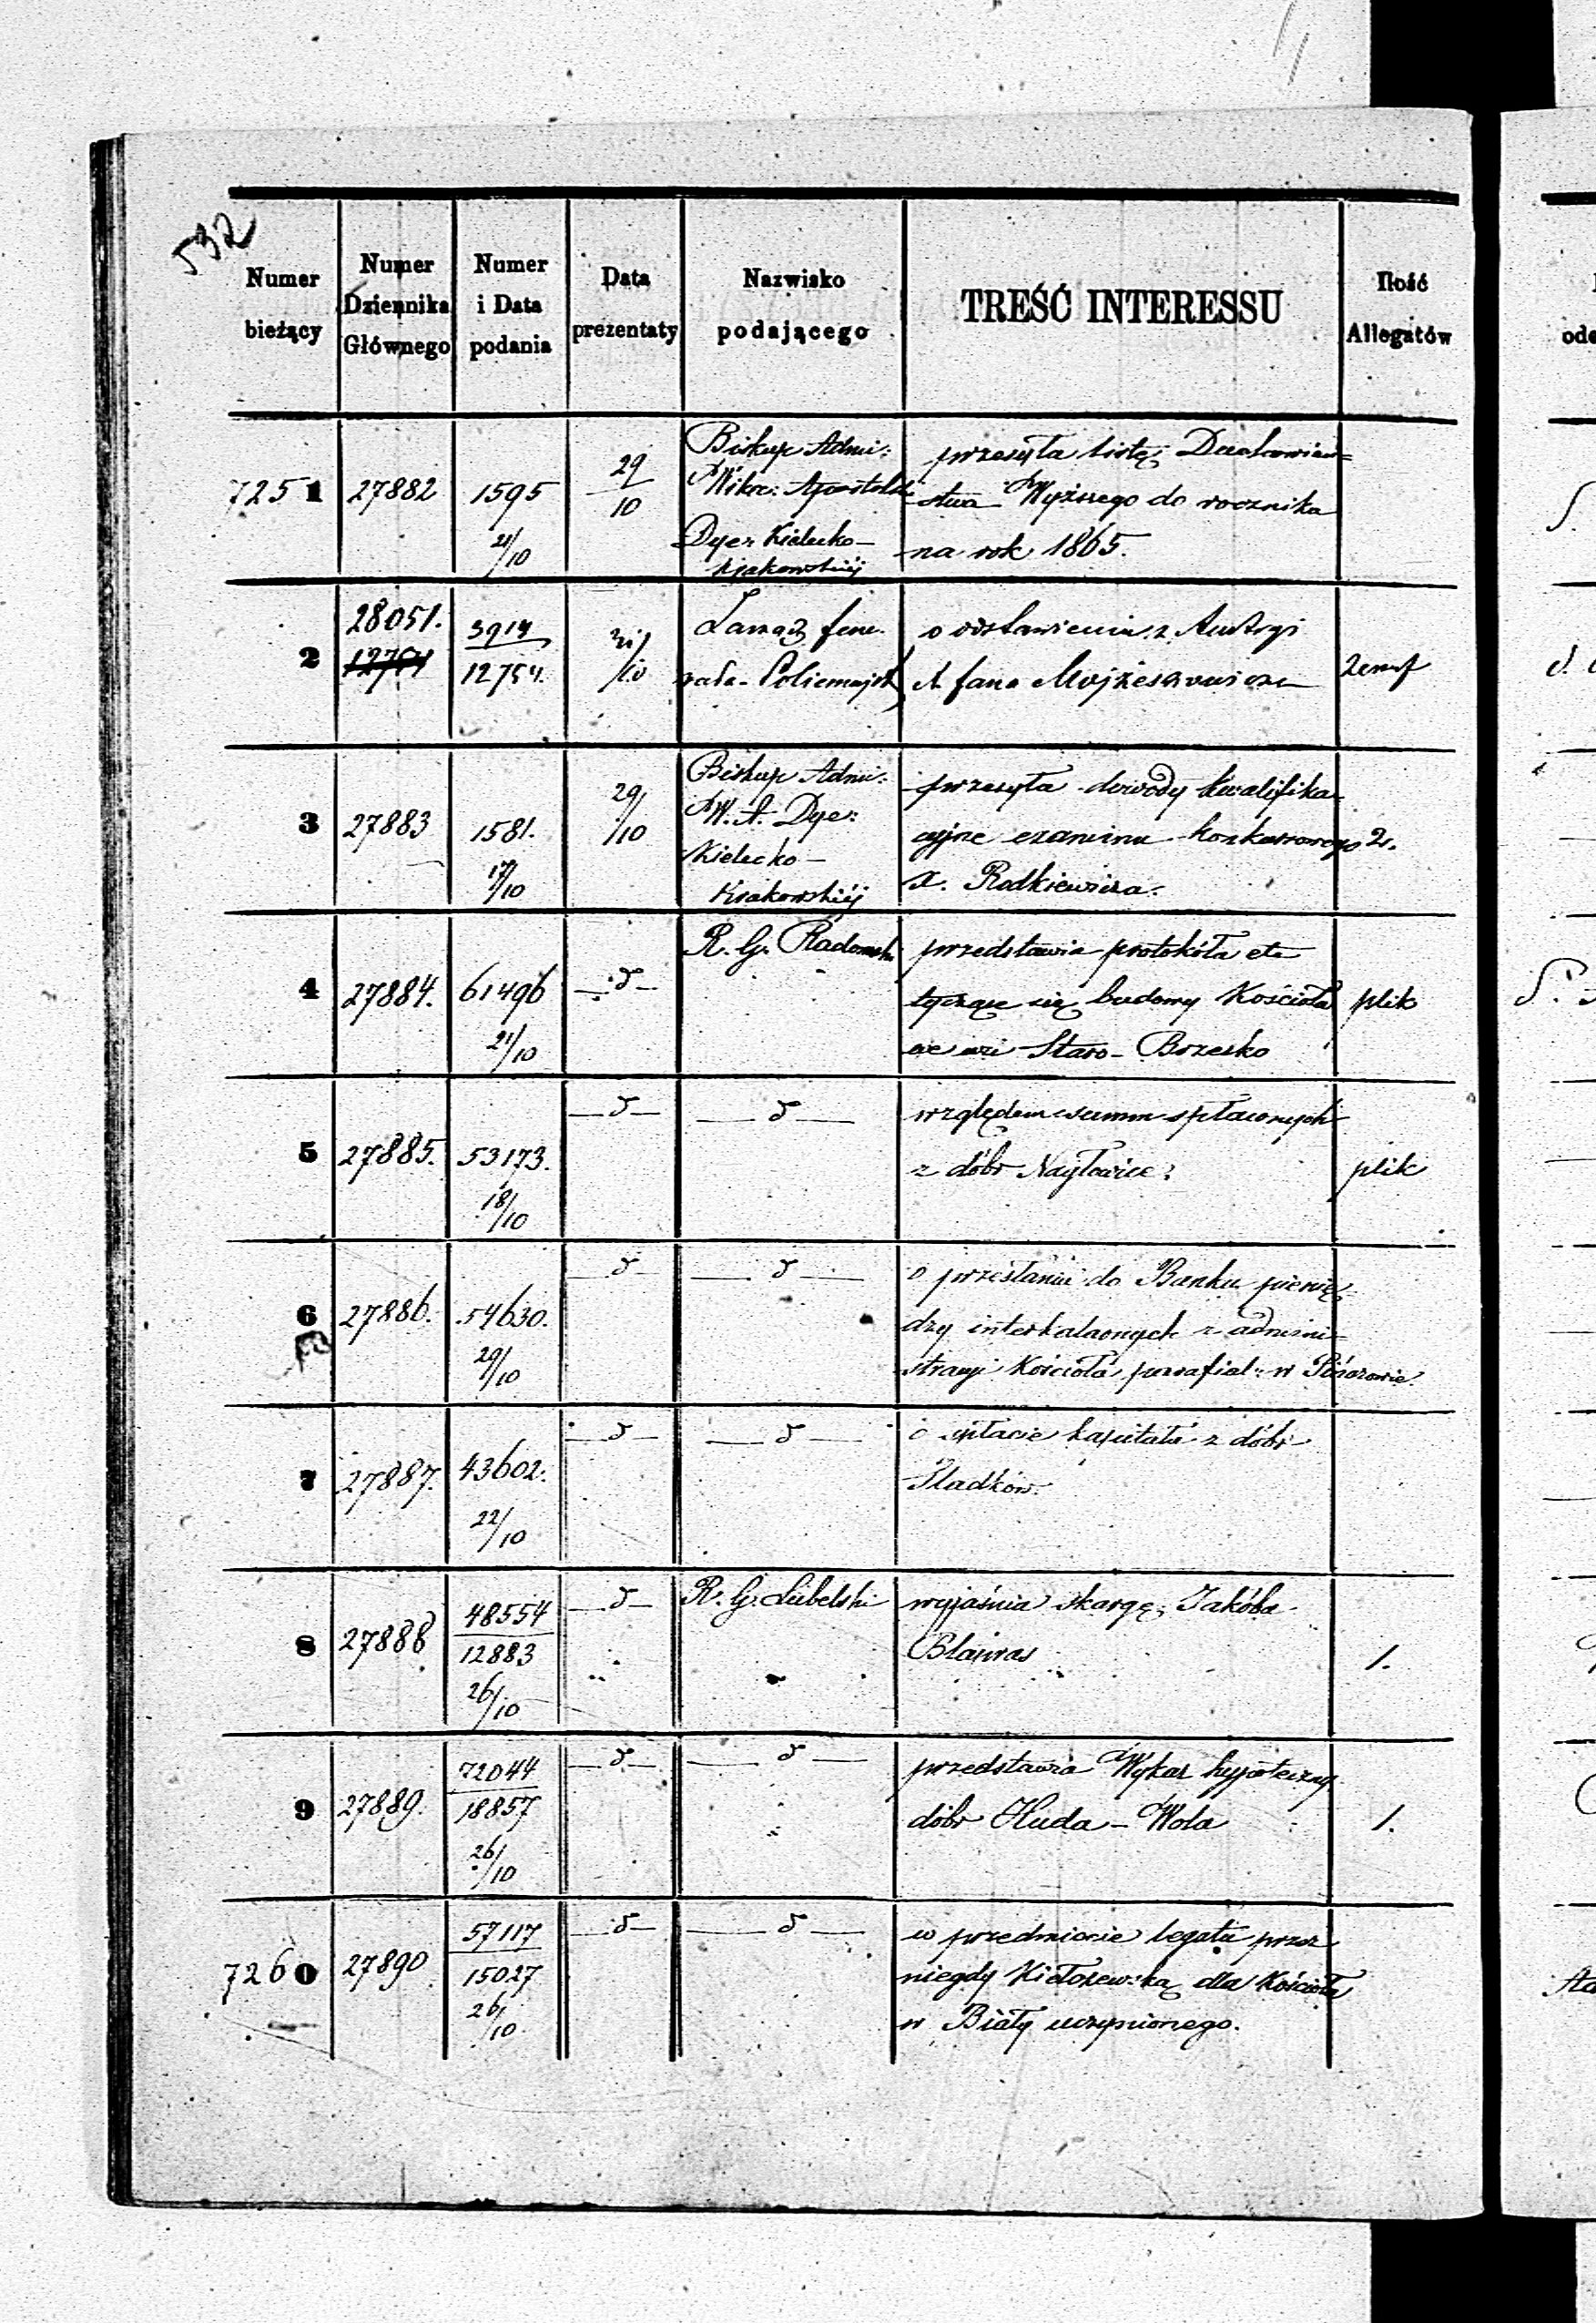 532
Numer bieżący | Numer Dziennika Głównego | Numer i Data podania | Data prezentaty | Nazwisko podającego | TREŚĆ INTERESSU | Ilość Allegatów
7251 | 27882 | 1595 21/10 | 29/10 | Biskup Admi: | przesyła listę Duchowień=
Wikar: Apostolski | stwa Wyższego do rocznika
Dyez Kielecko- | na rok 1865.
Krakowskiéj
2 | 28051. 12754 | 3914/12754. | 31/10 | Zarząd Jene- | o odstawieniu z Austryi
rała-Policmajstr | X Jana Mojżeszowicza | 2 emf
3 | 27883 | 1581. 17/10 | 29/10 | Biskup Admi: | przesyła dowody kwalifika-
W. A. Dye: | cyjne examinu konkursowego | 2.
Kielecko- | X. Rodkiewicza.
Krakowskiéj
4 | 27884. | 61496 21/10 | -d- | R. G. Radomski | przedstawia protokóła etc
tyczące się budowy Kościoła | plik
we wsi Staro-Brzesko
5 | 27885. | 53173. 18/10 | -d- | -d- | względem summ spławnych
z dóbr Nagłowice. | plik
6 | 27886. | 54630. 29/10 | -d- | -d- | o przesłanie do Banku pienię-
dzy interkalarnych z admini-
stracyi Kościoła parafial: w
7 | 27887. | 43602. 22/10 | -d- | -d- | o wpłacie kapitału z dóbr
Sladków.
8 | 27888 | 48554/12883 26/10 | -d- | R. G. Lubelski | wyjaśnia skargę Jakóba
Blawas | 1.
9 | 27889. | 72044/18857 26/10 | -d- | -d- | przedstawia Wykaz hypoteczny
dóbr Huda-Wola | 1.
7260 | 27890 | 57117/15027 26/10 | -d- | -d- | w przedmiocie legatu przez
niegdy Kiełczewską dla Kościoła
w Biały uczynionego.